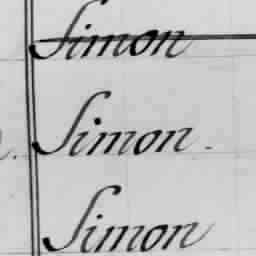 Simon
Simon.
Simon